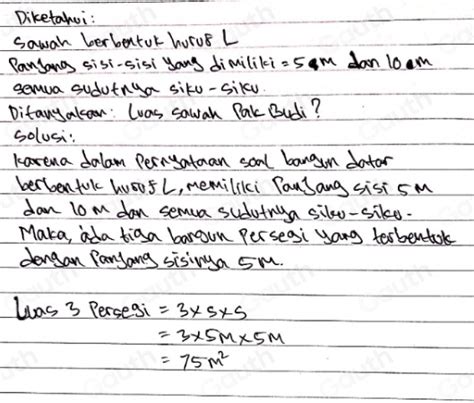 Diketahui:
Sawah berbentuk huruf L
Panjang sisi-sisi yang dimiliki = 5 m dan 10 m
semua sudutnya siku-siku.
Ditanyakan: Luas sawah Pak Budi?
Solusi:
Karena dalam Pernyataan soal bangun datar
berbentuk huruf L, memiliki Panjang sisi 5 M
dan 10 M dan semua sudutnya siku-siku.
Maka, ada tiga bangun Persegi yang terbentuk
dengan Panjang sisinya 5 M.
Luas 3 Persegi = 3 x s x s
= 3 x 5M x 5M
= 75 m²